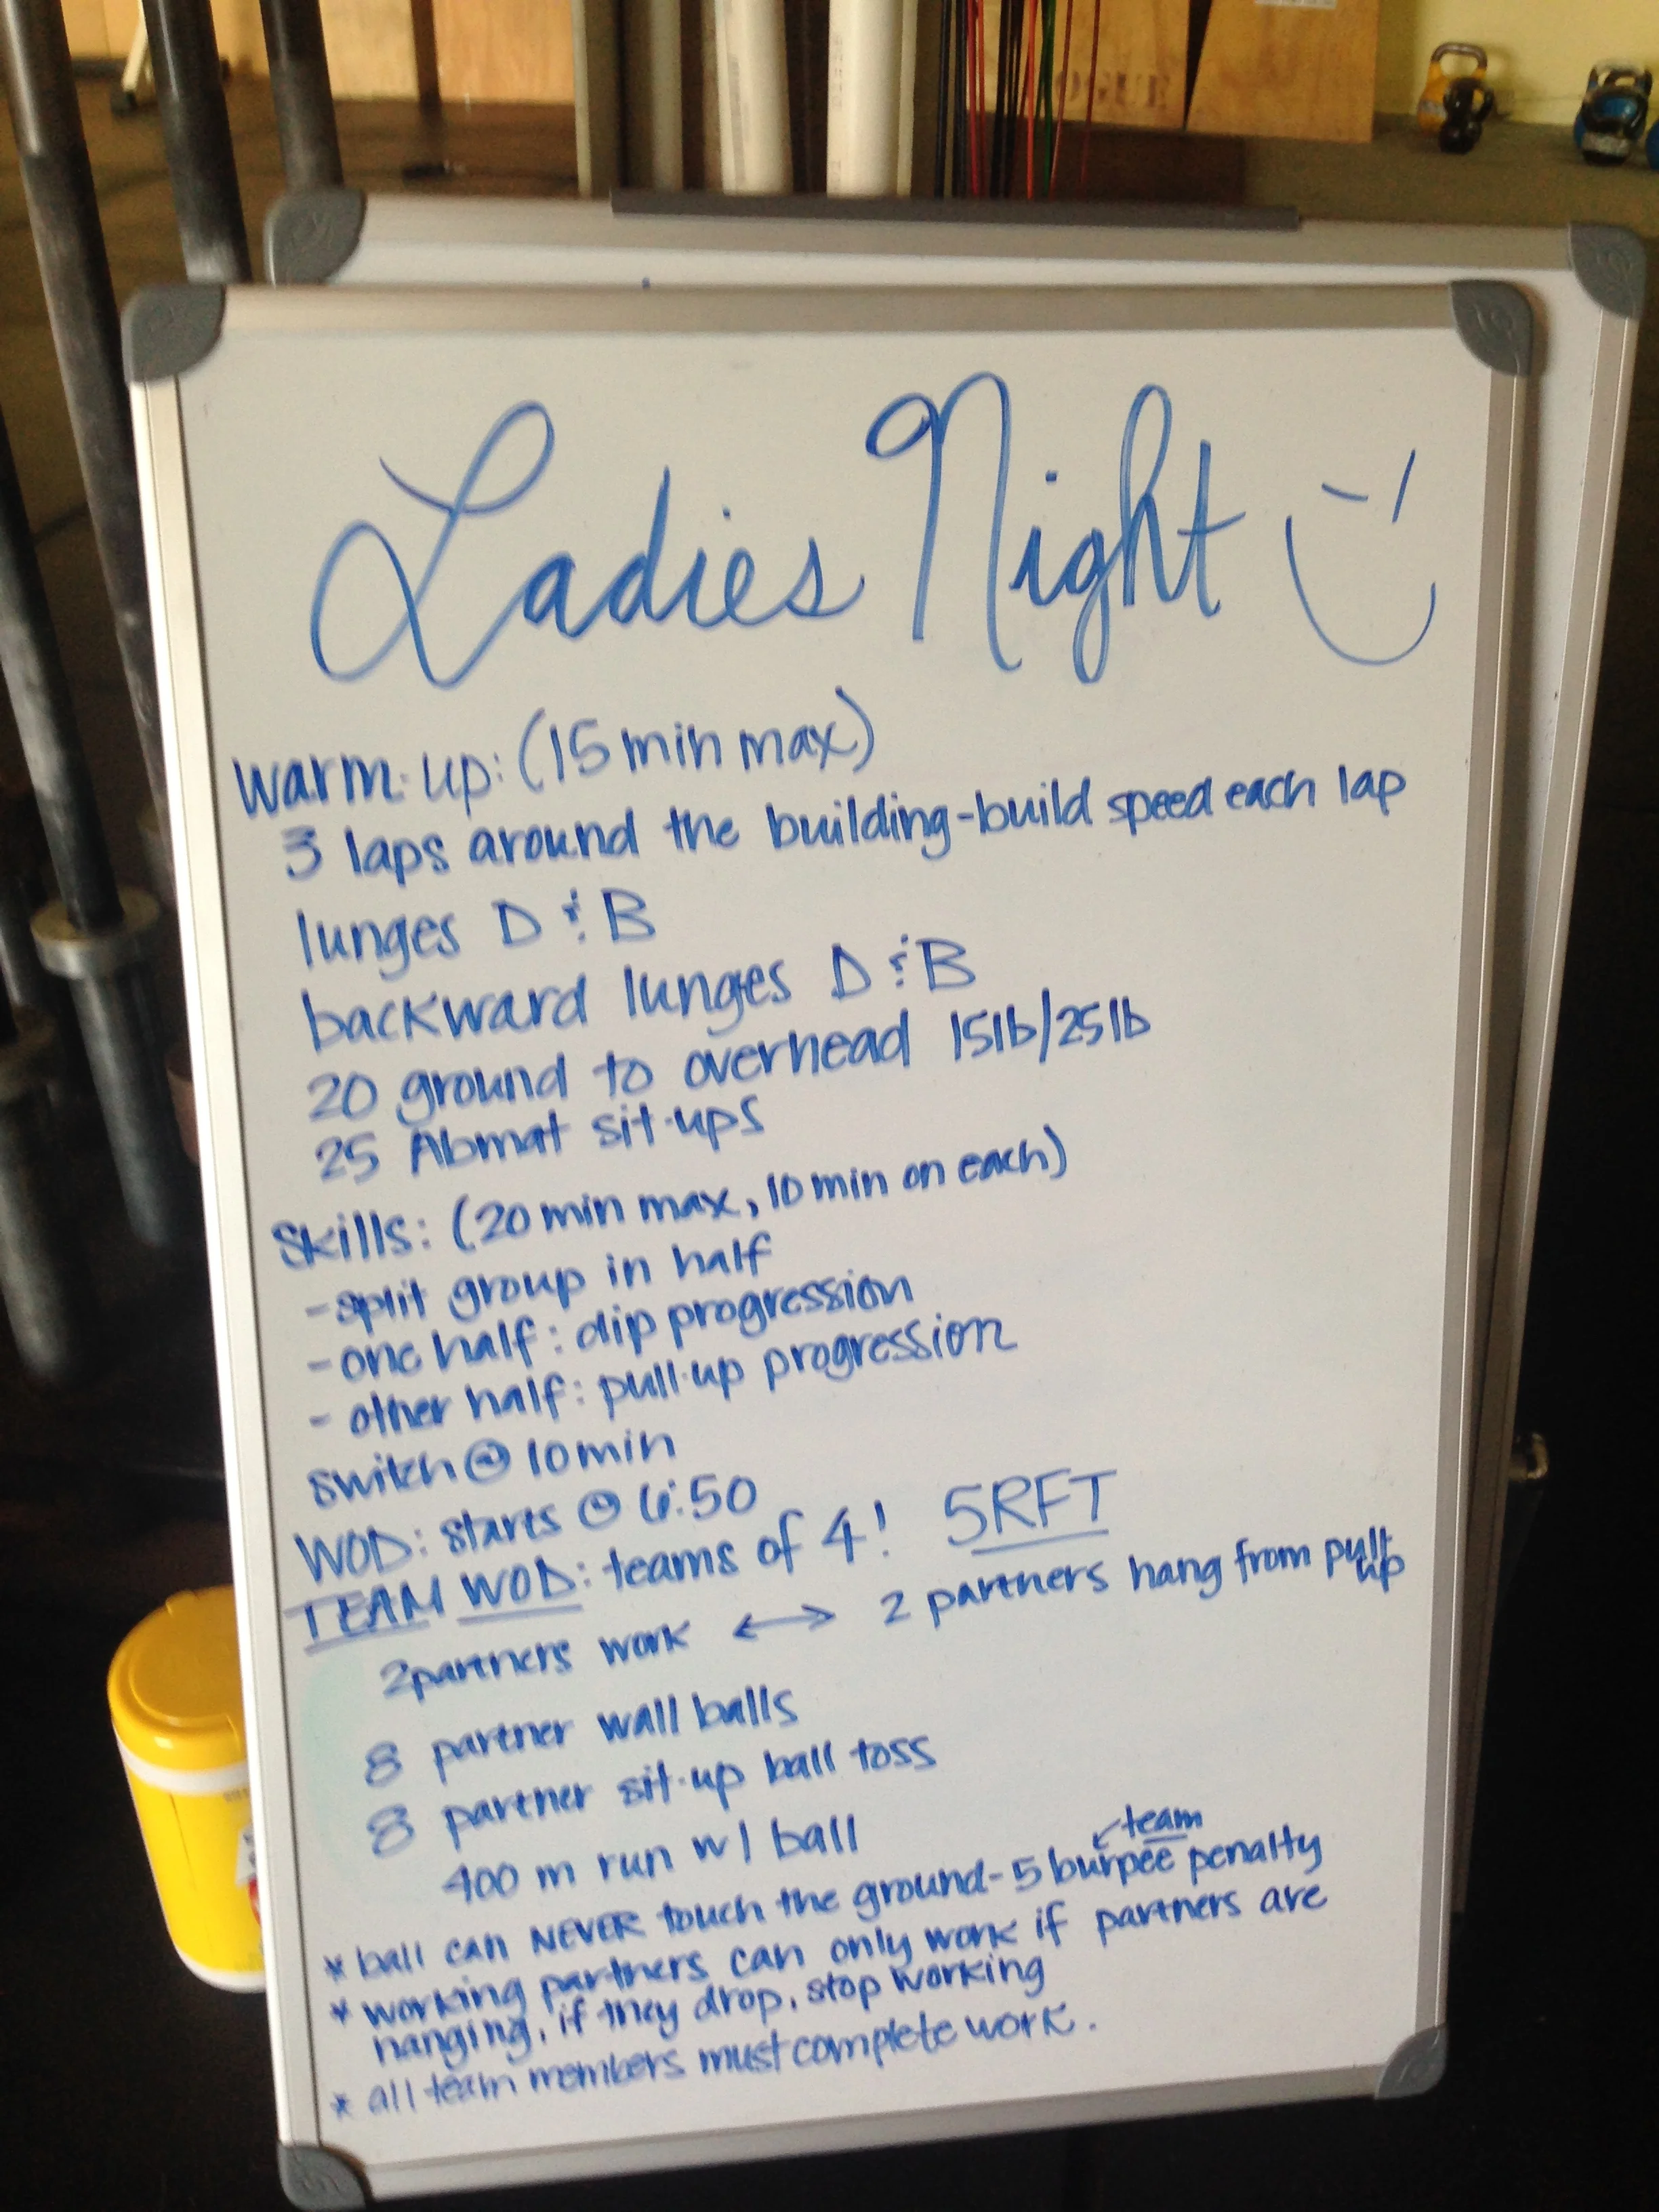 Ladies Night
Warm-up: (15 min max)
3 laps around the building-build speed each lap
lunges D & B
backward lunges D & B
20 ground to overhead 15lb/25lb
25 Abmat sit-ups
Skills: (20 min max, 10 min on each)
-split group in half
-one half: dip progression
- other half: pull-up progression
switch @ 10 min
WOD: starts @ 6:50
TEAM WOD: teams of 4! 5RFT
2 partners work ↔ 2 partners hang from pull up
8 partner wall balls
8 partner sit-up ball toss
400 m run w/ ball
team
* ball can NEVER touch the ground-5 burpee penalty
* working partners can only work if partners are
hanging, if they drop, stop working
* all team members must complete work.